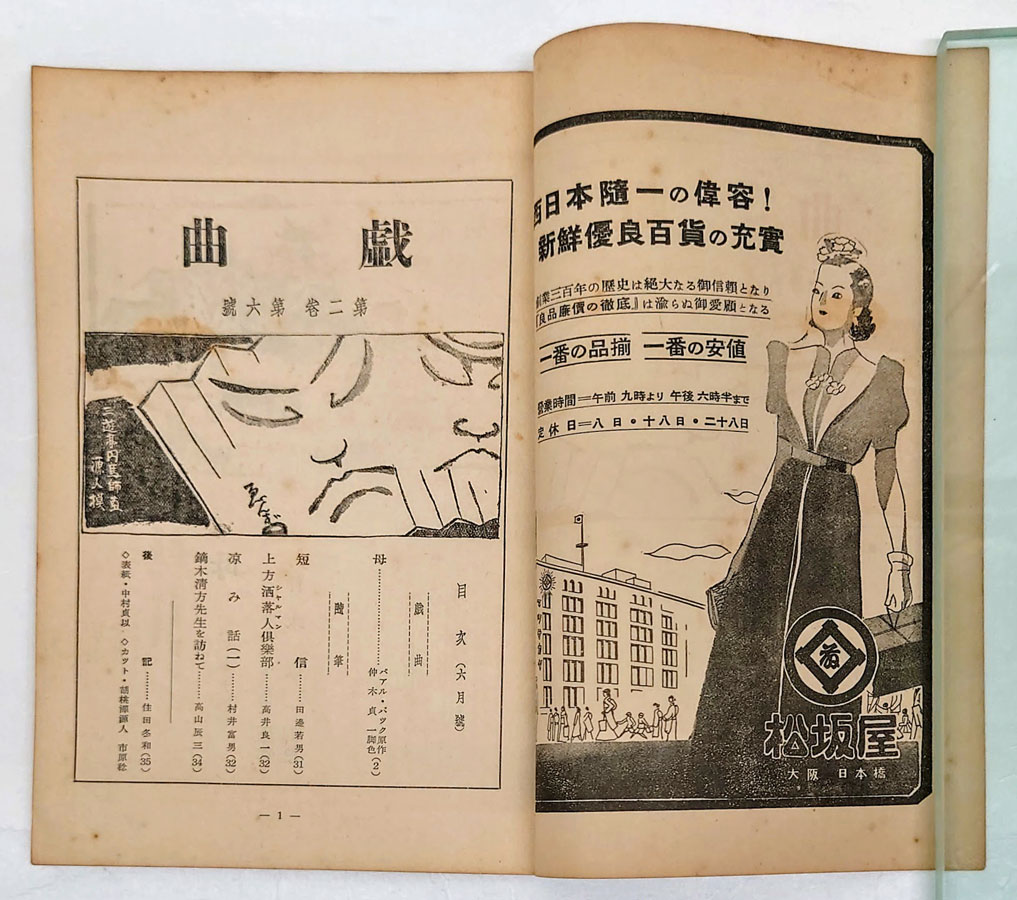 西日本隨一の偉容！
新鮮優良百貨の充實
創業三百年の歴史は絶大なる御信頼となり
『良品廉價の徹底』は渝らぬ御愛顧となる
一番の品揃 一番の安値
營業時間＝午前九時より午後六時半まで
定休日＝八日・十八日・二十八日
松坂屋
大阪 日本橋
戯曲
第二卷 第六號
目次（六月號）
戯曲
母…………パアル・バック原作
仲木貞一脚色（2）
隨筆
短信………田邊若男（31）
上方洒落人倶樂部………高井良一（32）
シヤルマン
凉み話（一）………村井富男（32）
鏑木清方先生を訪ねて………高山辰三（34）
後記………住田冬和（35）
◇表紙・中村貞以 ◇カット・
市原稔
— 1 —